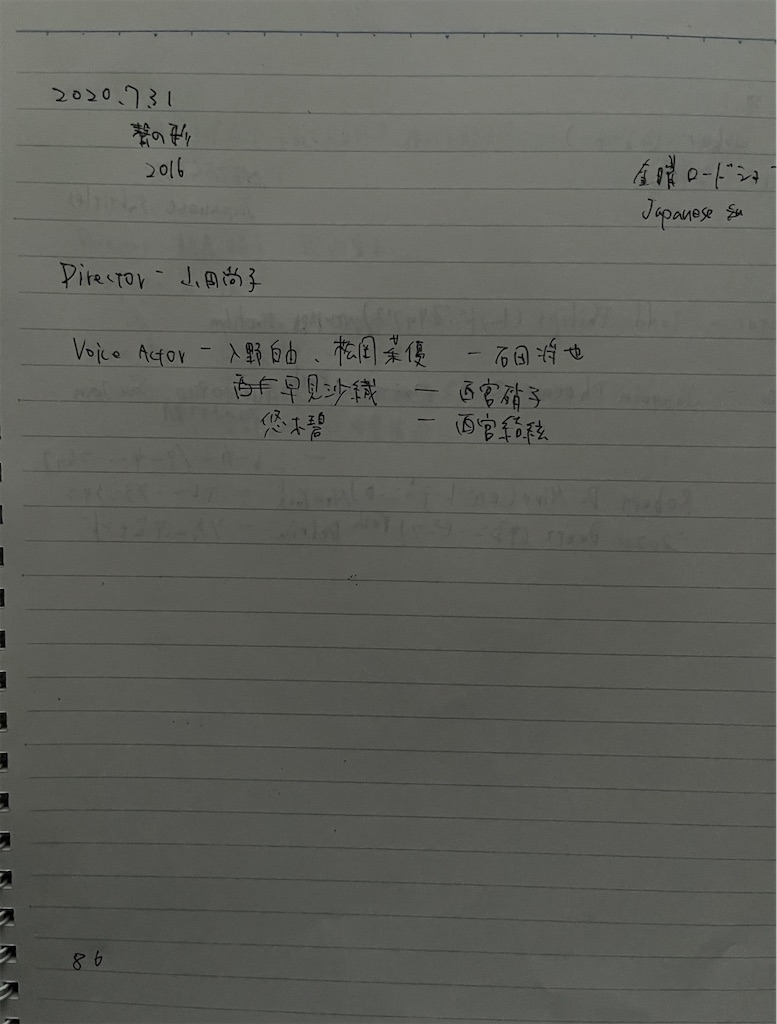 2020.7.31
聲の形
2016
金曜ロードショ
Japanese
Director - 山田尚子
Voice Actor - 入野自由、松岡茉優 - 石田将也
早見沙織 - 西宮硝子
悠木碧 - 西宮結絃
86